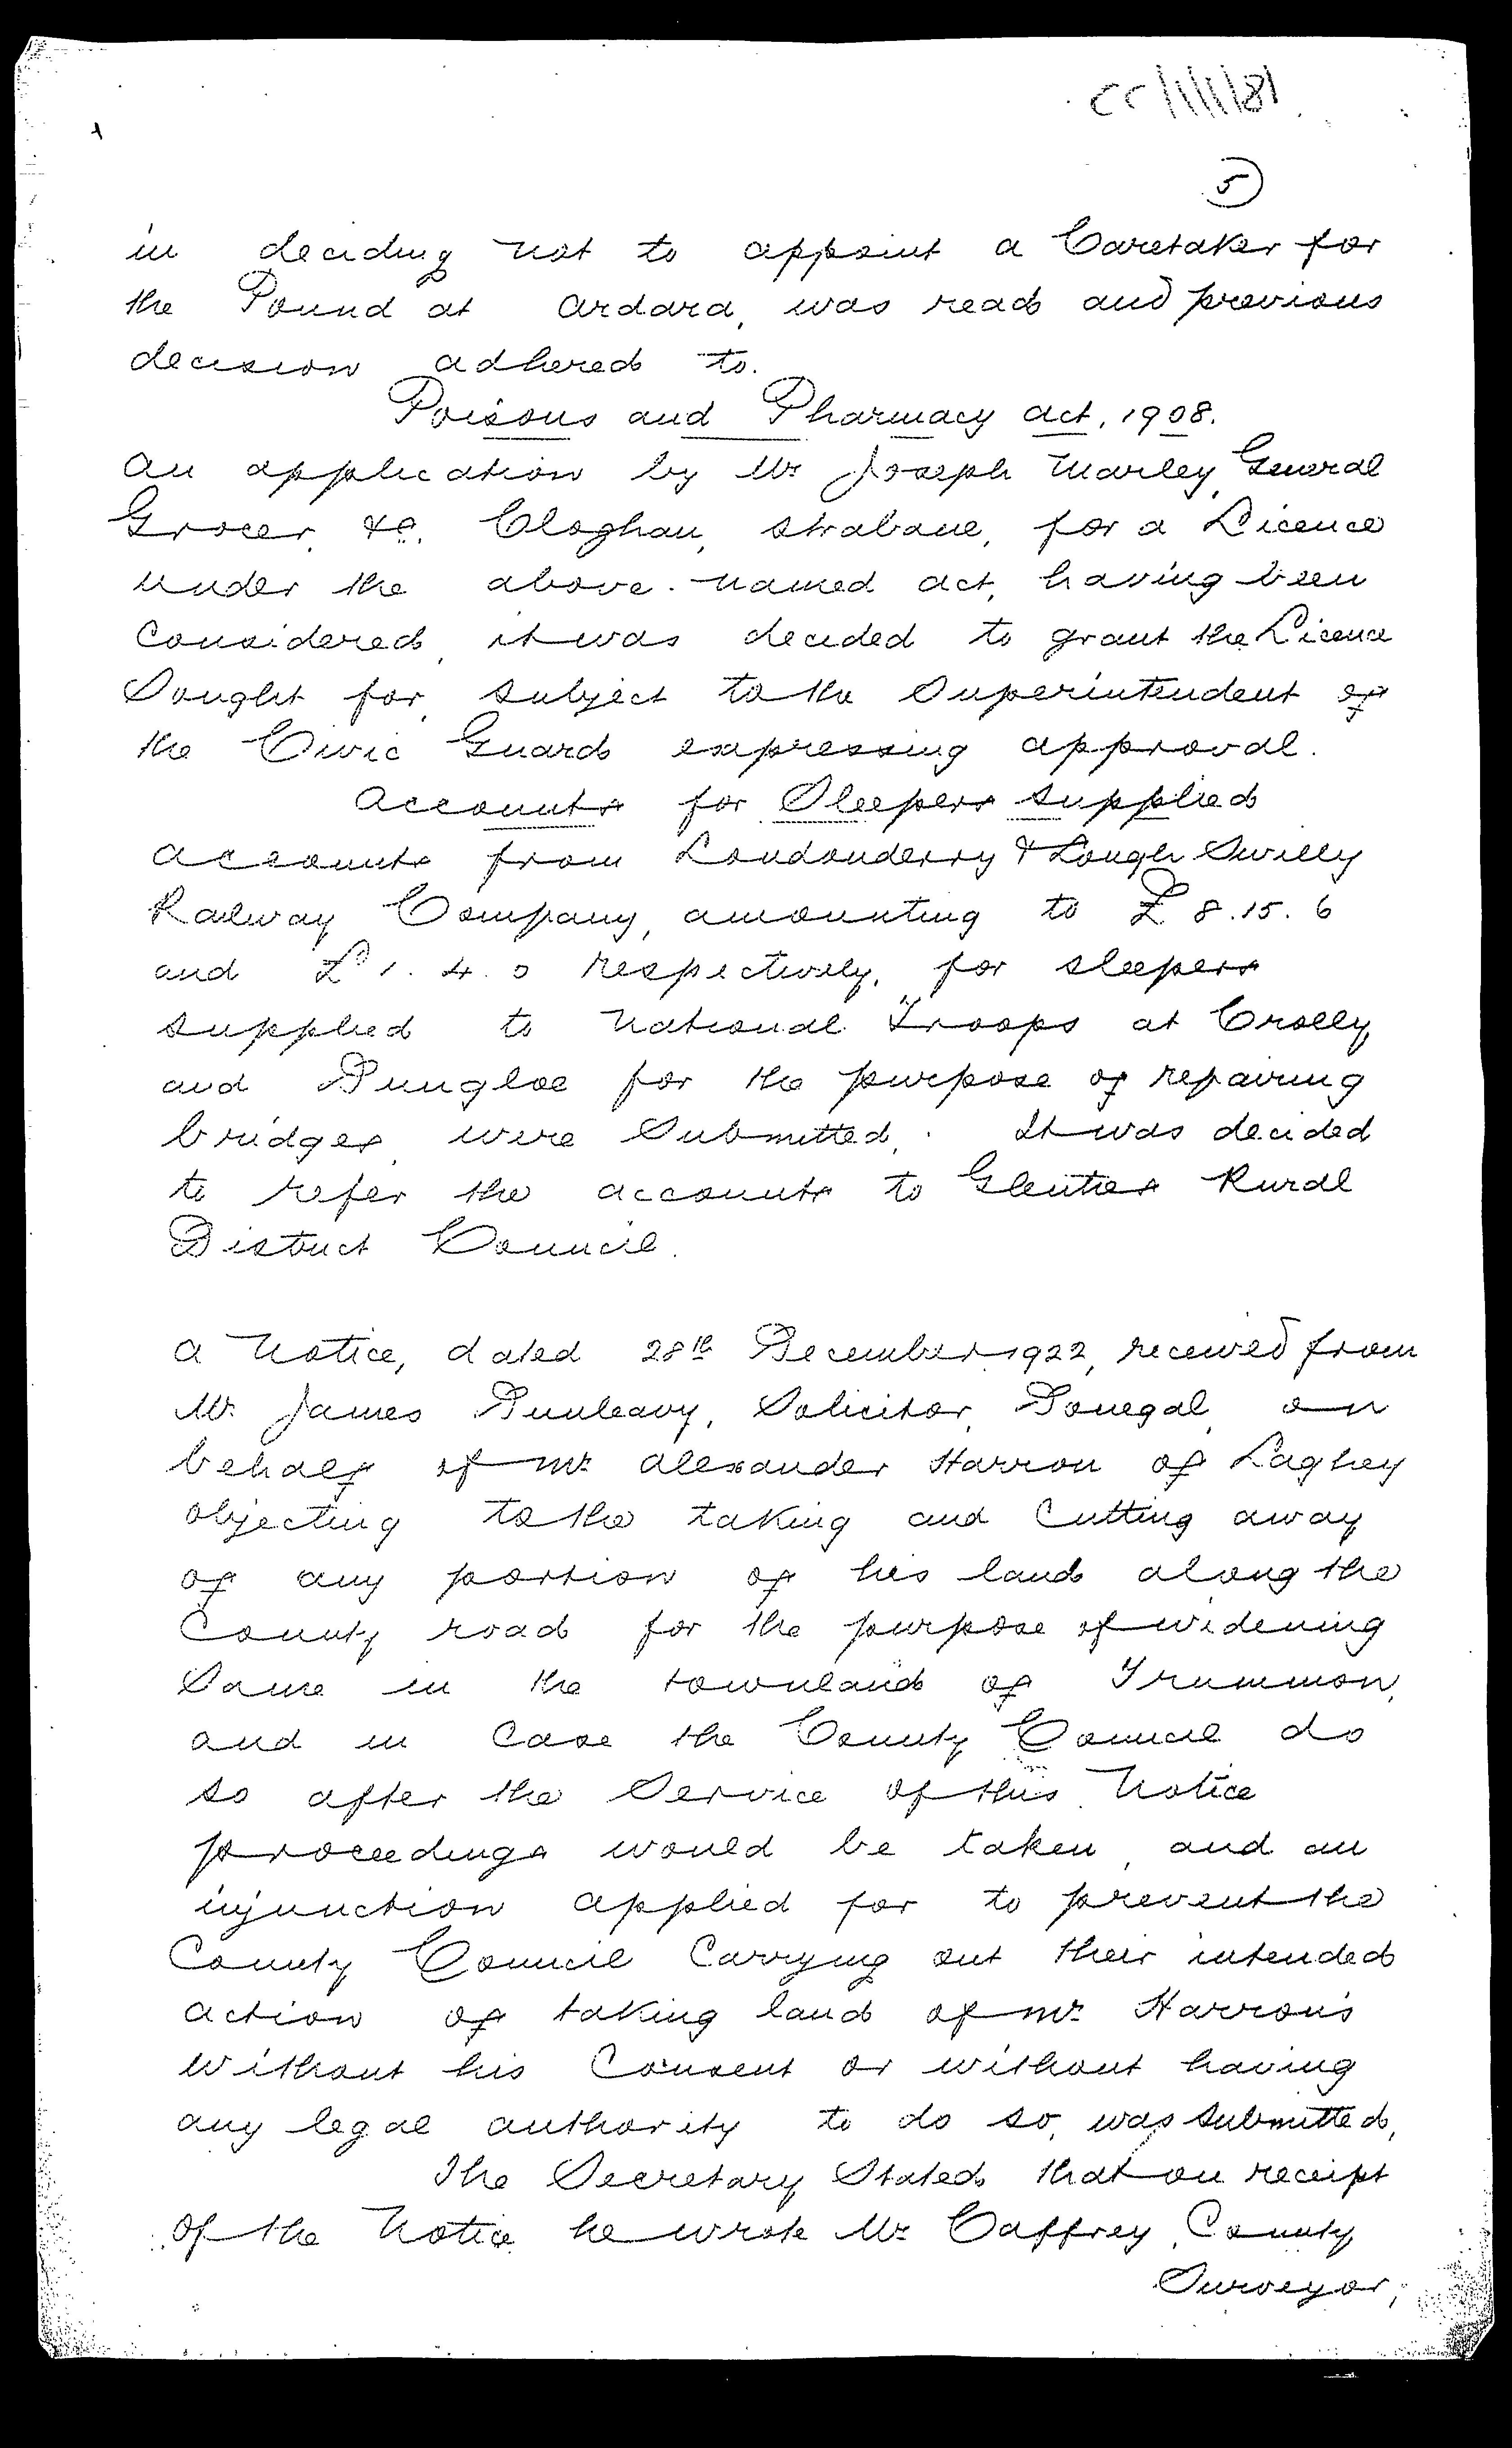 CC/1/1/81
5
in deciding not to appoint a Caretaker for
the Pound at Ardara, was read and previous
decision adhered to.
Poisons and Pharmacy Act, 1908.
An application by Mr Joseph Marley, General
Grocer, &c. Cloghan, Strabane, for a Licence
under the above-named Act, having been
Considered, it was decided to grant the Licence
Sought for, subject to the Superintendent of
the Civic Guard expressing approval.
Accounts for Sleepers Supplied
Accounts from Londonderry & Lough Swilly
Railway Company, amounting to £8.15.6
and £1.4.0 respectively, for sleepers
supplied to National Troops at Crolly
and Dungloe for the purpose of repairing
bridges, were Submitted. It was decided
to refer the accounts to Glenties Rural
District Council.
A Notice, dated 28th December 1922, received from
Mr. James Dunleavy, Solicitor, Donegal, on
behalf of Mr. Alexander Harron of Laghey
objecting to the taking and Cutting away
of any portion of his land along the
County road for the purpose of widening
Same in the townland of Trummon,
and in Case the County Council do
so after the Service of this Notice
proceedings would be taken, and an
injunction applied for to prevent the
County Council Carrying out their intended
action of taking land of Mr. Harron's
without his Consent or without having
any legal authority to do so, was submitted,
The Secretary Stated that on receipt
of the Notice he wrote Mr. Caffrey, County
Surveyor,